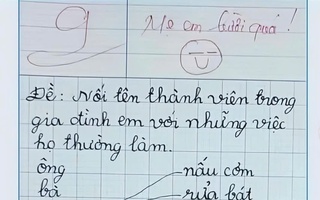 9
Mẹ em lười quá!
Đề: Nối tên thành viên trong
gia đình em với những việc
họ thường làm.
ông nấu cơm
bà rửa bát